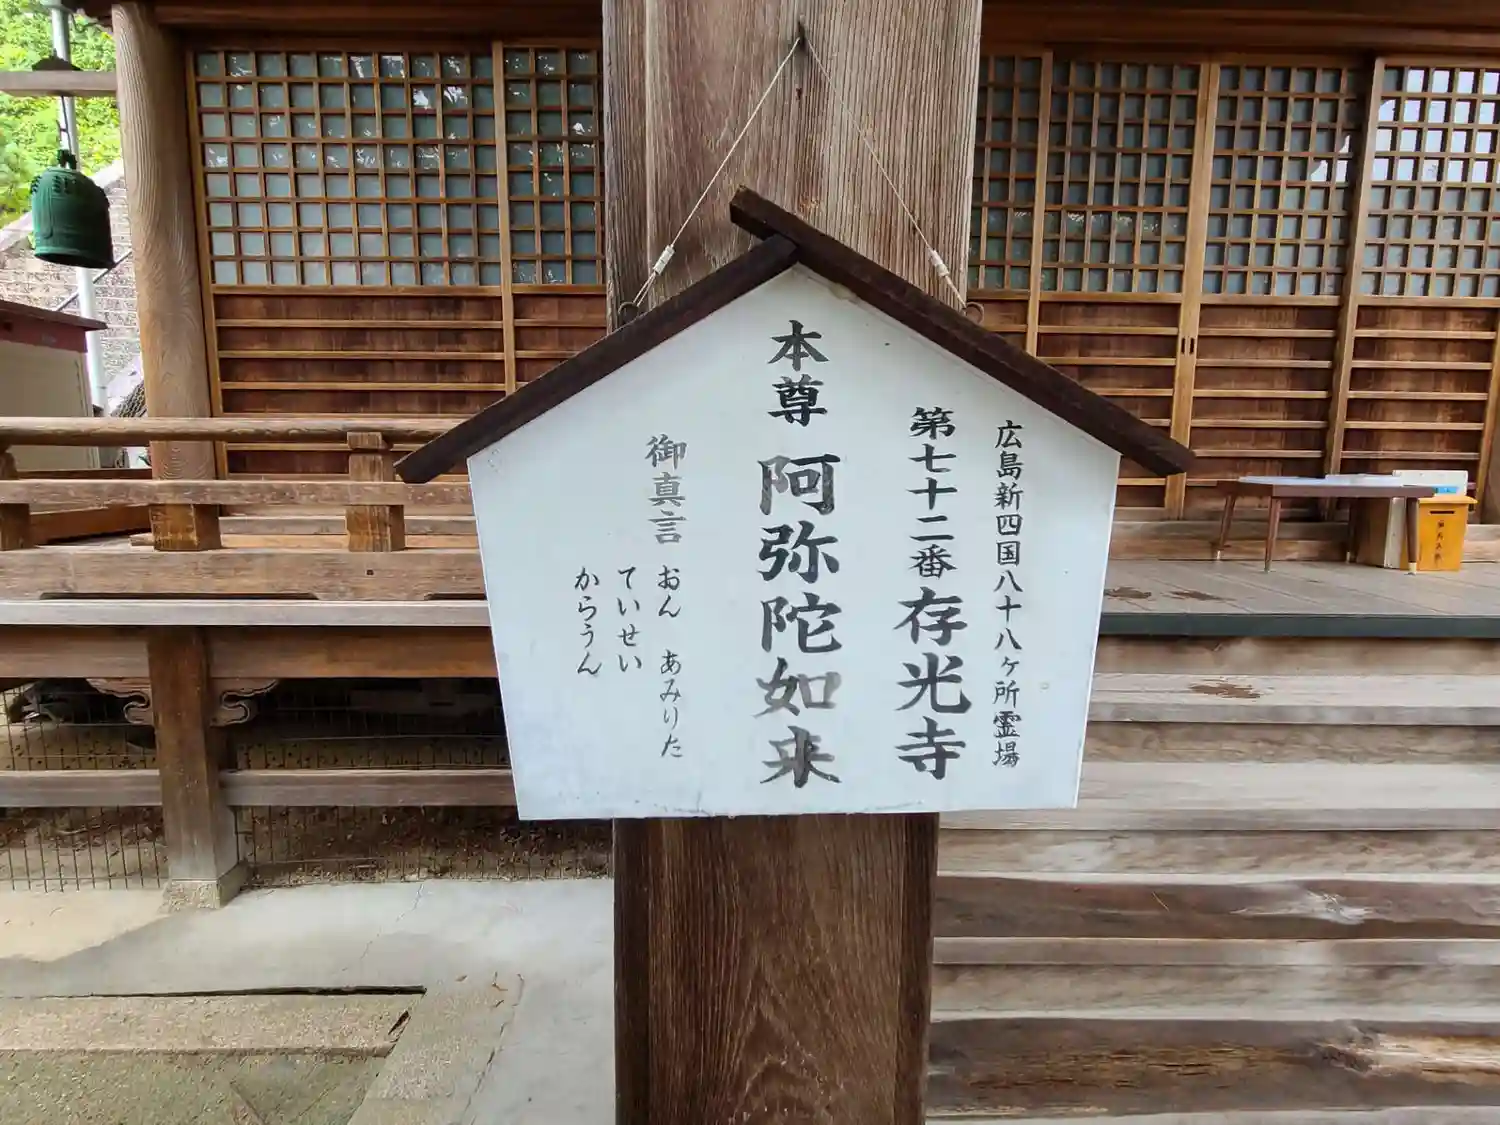 広島新四国八十八ヶ所霊場
第七十二番 存光寺
本尊 阿弥陀如来
御真言 おん あみりた
ていせい
からうん